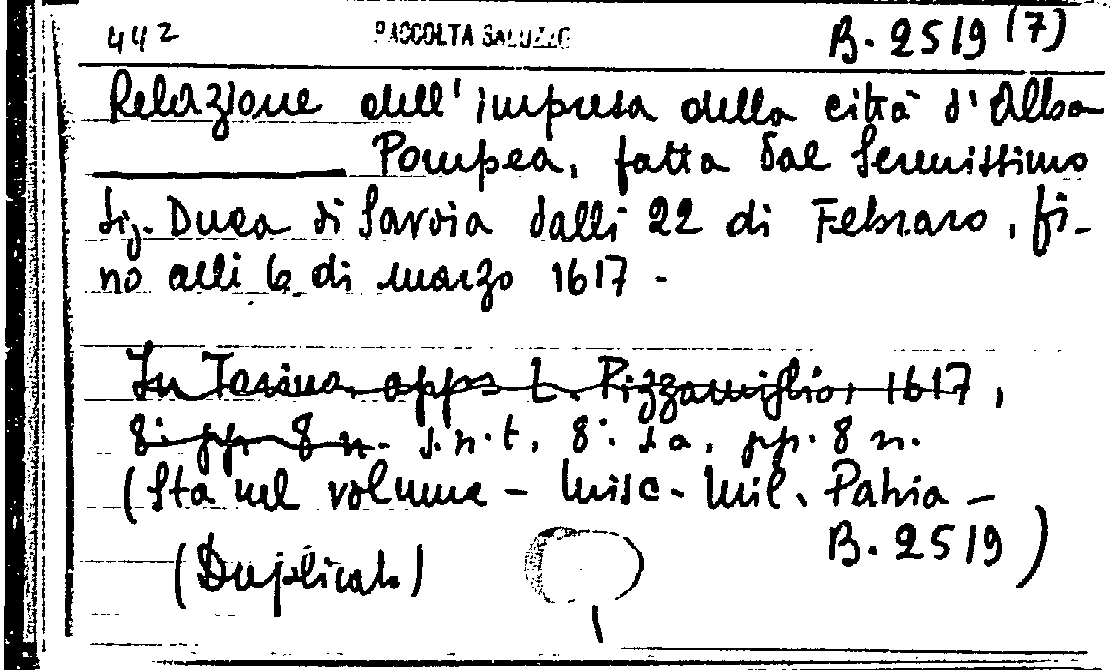 442 RACCOLTA SALUZZO B. 2519 (7)
Relazione dell'impresa della città d'Alba
Pompea, fatta dal Serenissimo
Sig. Duca di Savoia dalli 22 di Febraro, fi-
no alli 6 di marzo 1617 -
In Torino, app. L. Pizzamiglio, 1617,
8° pp. 8 n. s.n.t. 8°. s.a. pp. 8 n.
(Sta nel volume - Misc. Mil. Patria -
B. 2519)
(Duplicato)